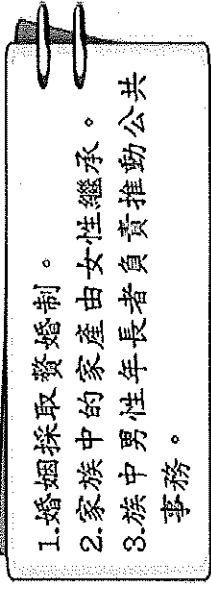 1.婚姻採取贅婚制。
2.家族中的家產由女性繼承。
3.族中男性年長者負責推動公共
事務。